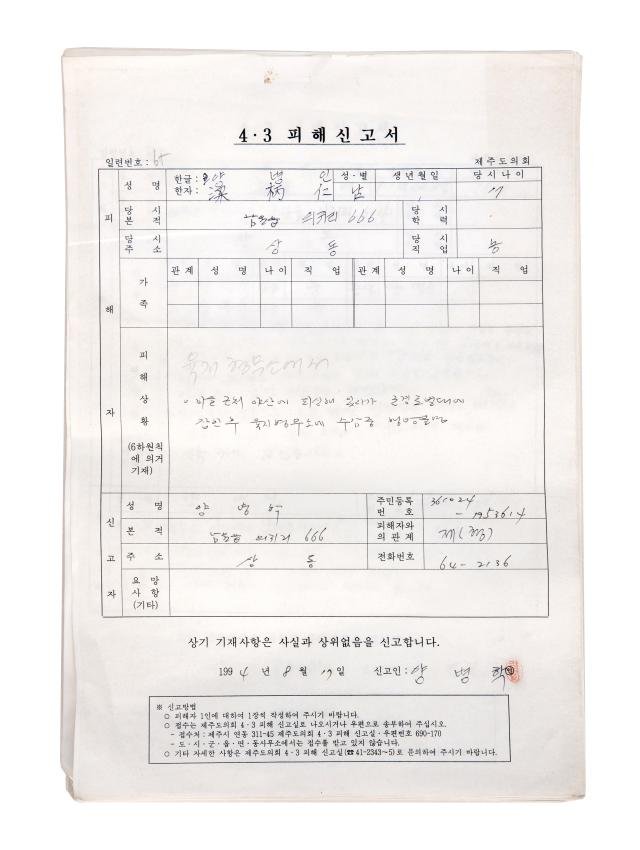 4·3 피해신고서
일련번호: 65
제주도의회
성 명 한글: 양 병 인 성·별 생년월일 당시나이
한자: 梁 柄 仁 남 17
피해자
당시본적 남원읍 의귀리 666 당시학력
당시주소 상 동 당시직업 농
가족 관계 성 명 나이 직 업 관계 성 명 나이 직 업
피해상황
육지 형무소에서
(6하원칙에 의거 기재)
· 마을 근처 야산에 피신해 있다가 군경토벌대에
잡힌 후 육지형무소에 수감중 행방불명
신고자
성 명 양 병 학 주민등록번호
본 적 남원읍 의귀리 666 피해자와의 관계 제(형)
주 소 상 동 전화번호 64-2136
요망사항(기타)
상기 기재사항은 사실과 상위없음을 신고합니다.
1994 년 8 월 17일 신고인: 양 병 학
※ 신고방법
○ 피해자 1인에 대하여 1장씩 작성하여 주시기 바랍니다.
○ 접수는 제주도의회 4·3 피해 신고실로 나오시거나 우편으로 송부하여 주십시오.
- 접수처: 제주시 연동 311-45 제주도의회 4·3 피해 신고실·우편번호 690-170
- 도·시·군·읍·면·동사무소에서는 접수를 받고 있지 않습니다.
○ 기타 자세한 사항은 제주도의회 4·3 피해 신고실(☎41-2343~5)로 문의하여 주시기 바랍니다.